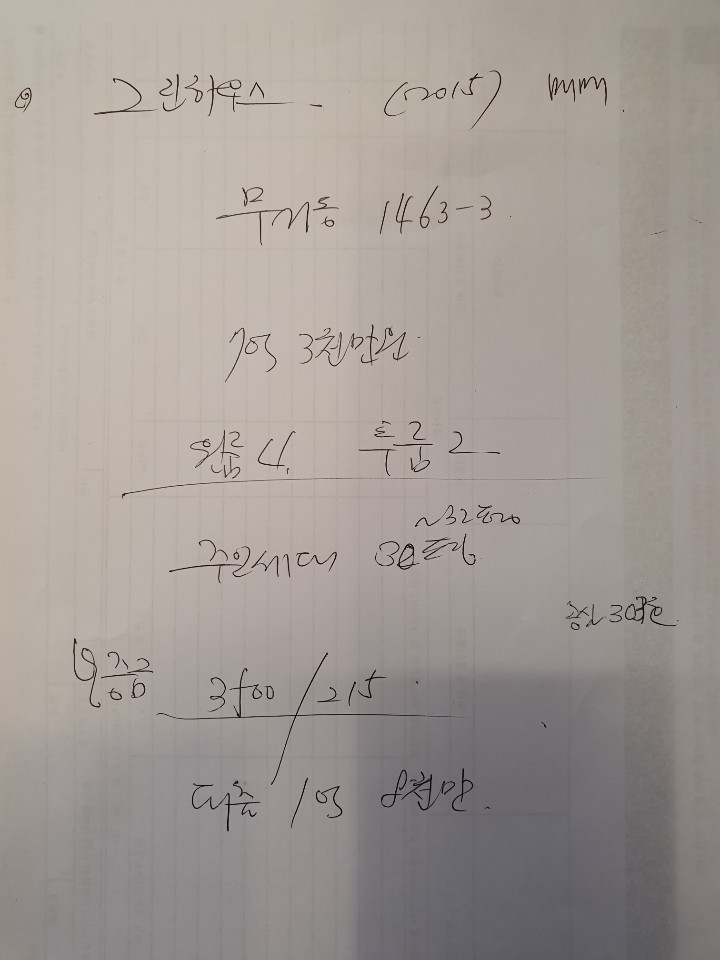 그린하우스 (2015)
무거동 1463-3
7억 3천만원
원룸 4. 투룸 2
~32평
주인세대 30평
공실 303호
보증금 3500/215
대출 1억 8천만.